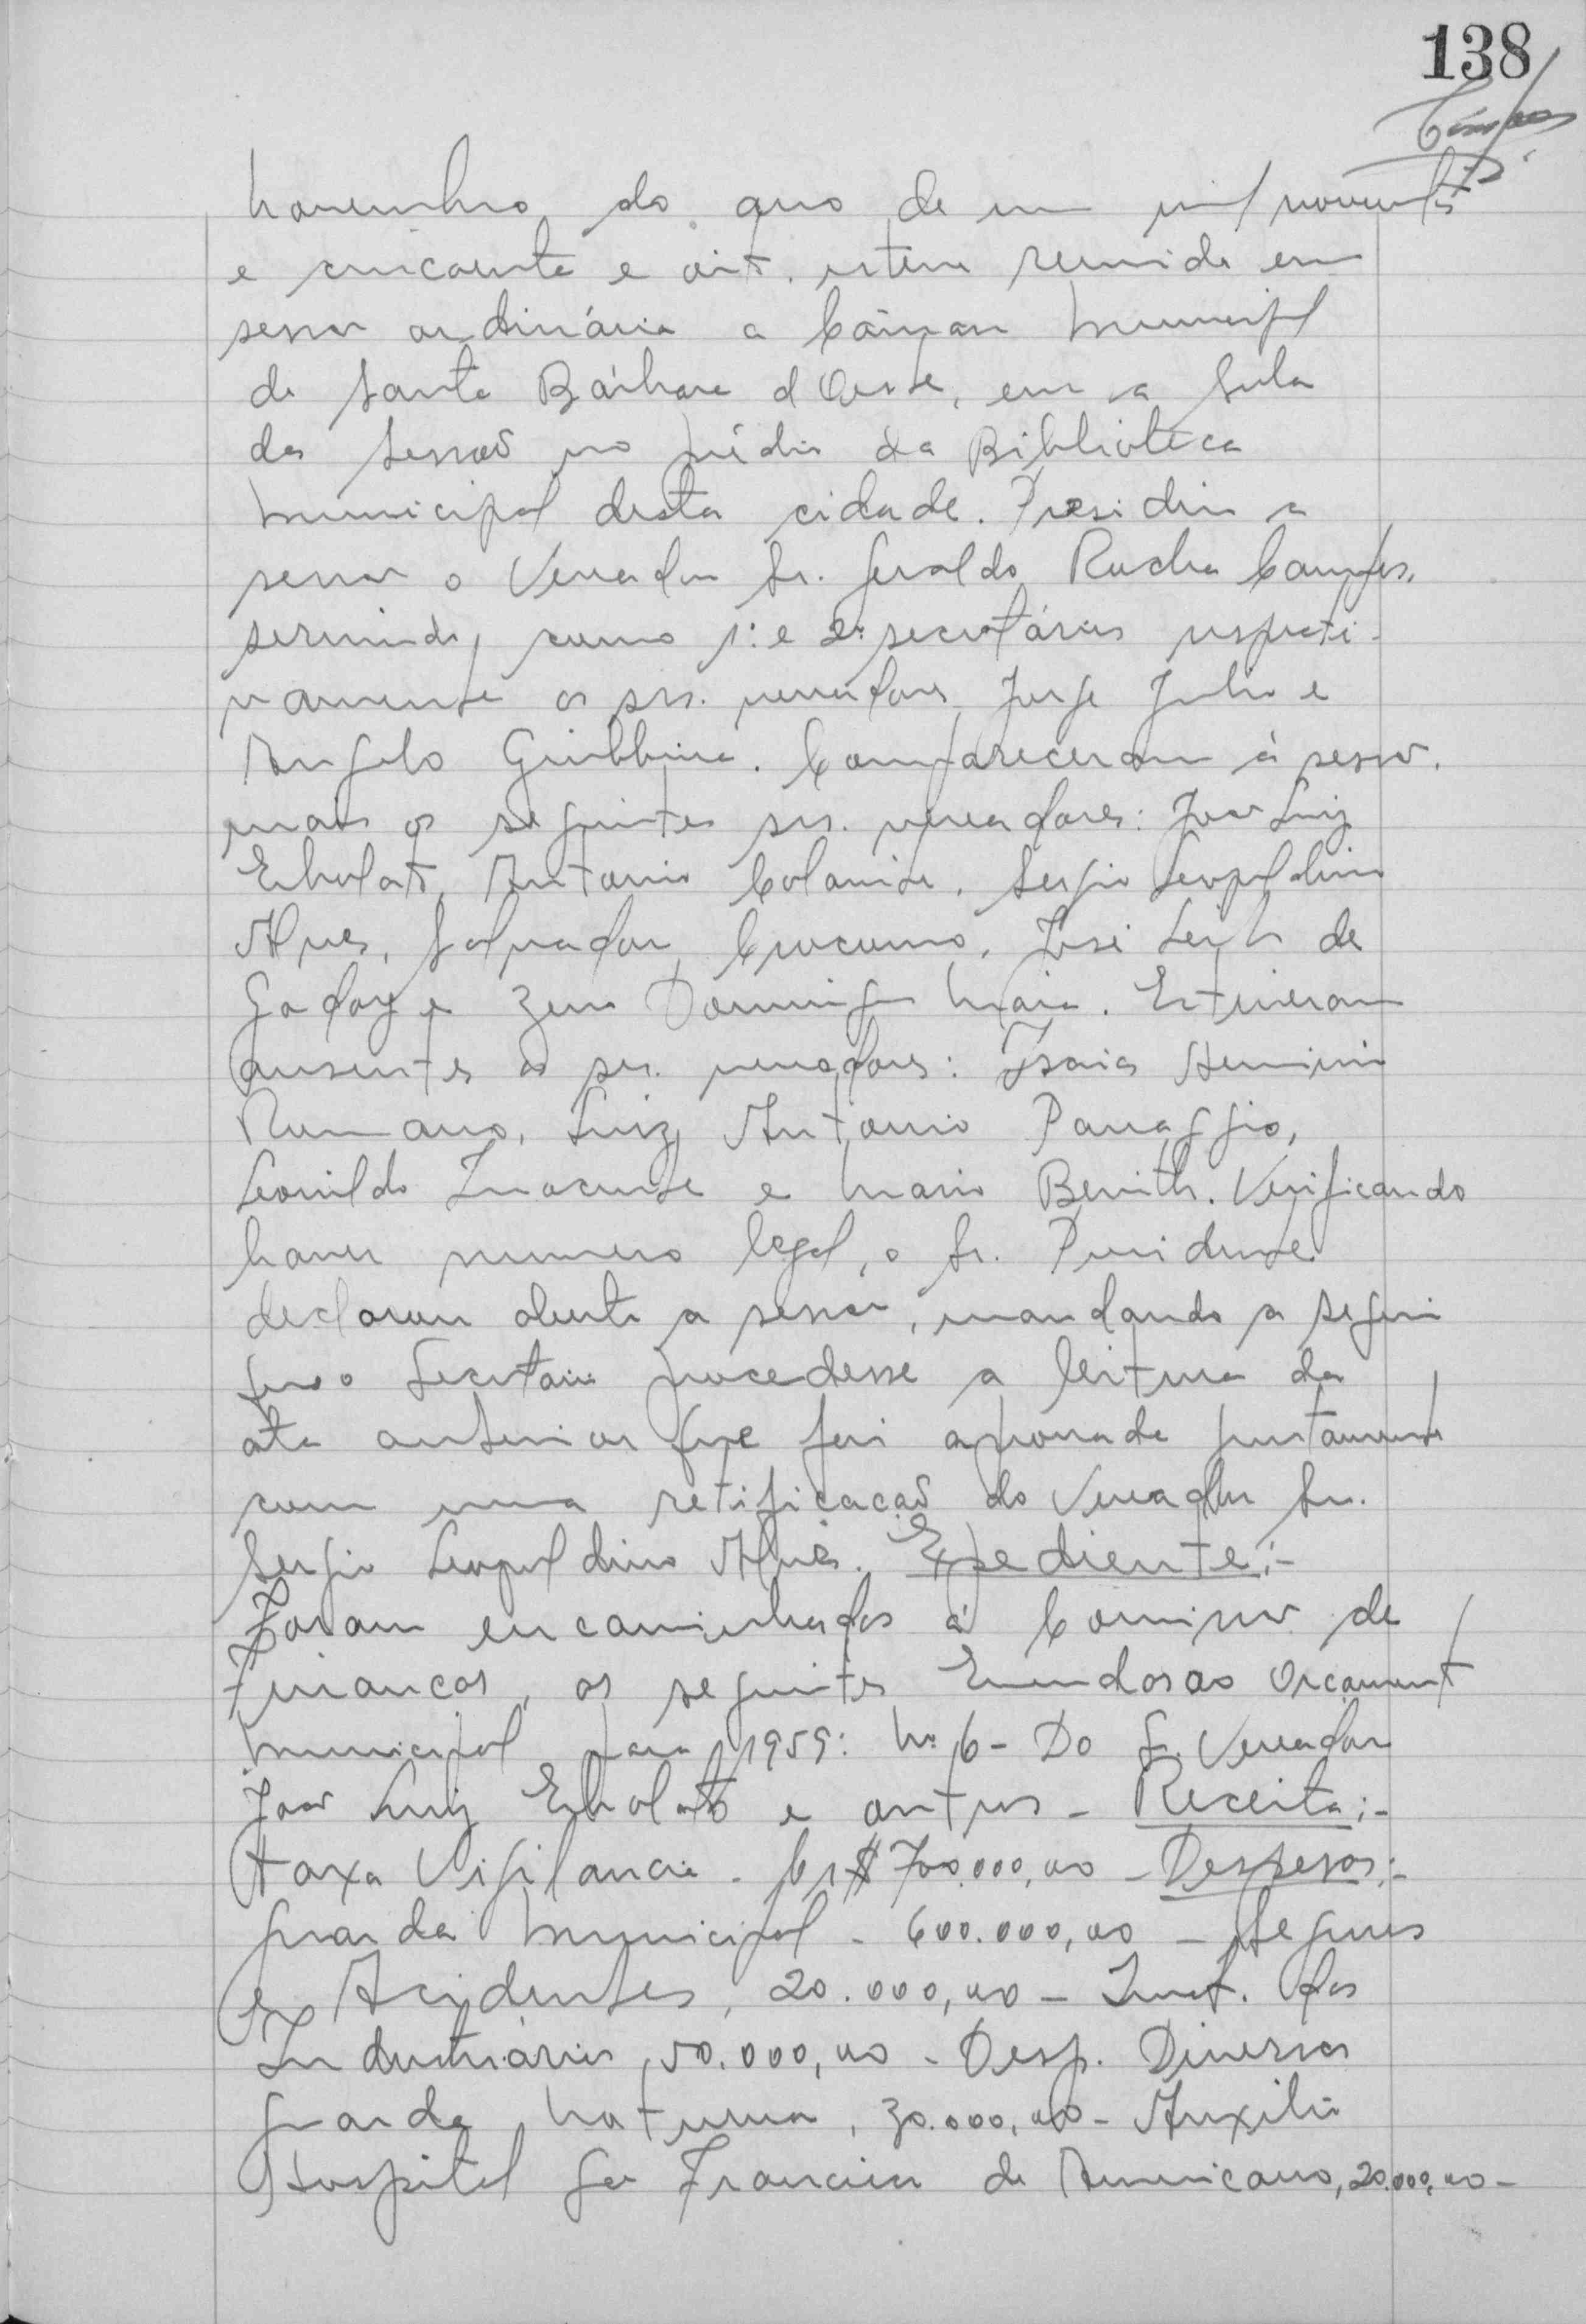 138
Novembro do ano de um mil novecentos
e cincoenta e oito, esteve reunida em
sessão ordinária a Câmara Municipal
de Santa Bárbara d'Oeste, em a Sala
das Sessões no prédio da Biblioteca
Municipal desta cidade. Presidiu a
sessão o Vereador Sr. Geraldo Rocha Campos,
servindo, como 1º e 2º secretários respecti-
vamente os srs. vereadores Jorge Julio e
Angelo Giubbina. Compareceram à sessão,
mais os seguintes srs. vereadores: João Luiz
Antonio Sergio Leopoldino
Alves, Salvador José Leite de
Godoy e Zeno Domingos Maia. Estiveram
ausentes os srs. vereadores: Isaias Herminio
Romano, Luiz Antonio Panaggio,
Leonildo e Mario Verificando
haver numero legal, o Sr. Presidente
declarou aberta a sessão, mandando a seguir
que o Secretario procedesse a leitura da
ata anterior que foi aprovada juntamente
com uma retificação do Vereador Sr.
Sergio Leopoldino Alves. Expediente:-
Foram encaminhadas à Comissão de
Finanças, as seguintes Emendas ao Orçamento
Municipal para 1959: Nº 6 - Do Sr. Vereador
João Luiz e outros - Receita:-
taxa Vigilancia - Cr$ 700.000,00 - Despesas:-
guarda Municipal - 600.000,00 - Seguros
Acidentes, 20.000,00 - Inst. dos
Industriários, 50.000,00 - Desp. Diversas
guarda Noturna, 30.000,00 - Auxilio
Hospital São Francisco de Americana, 20.000,00 -